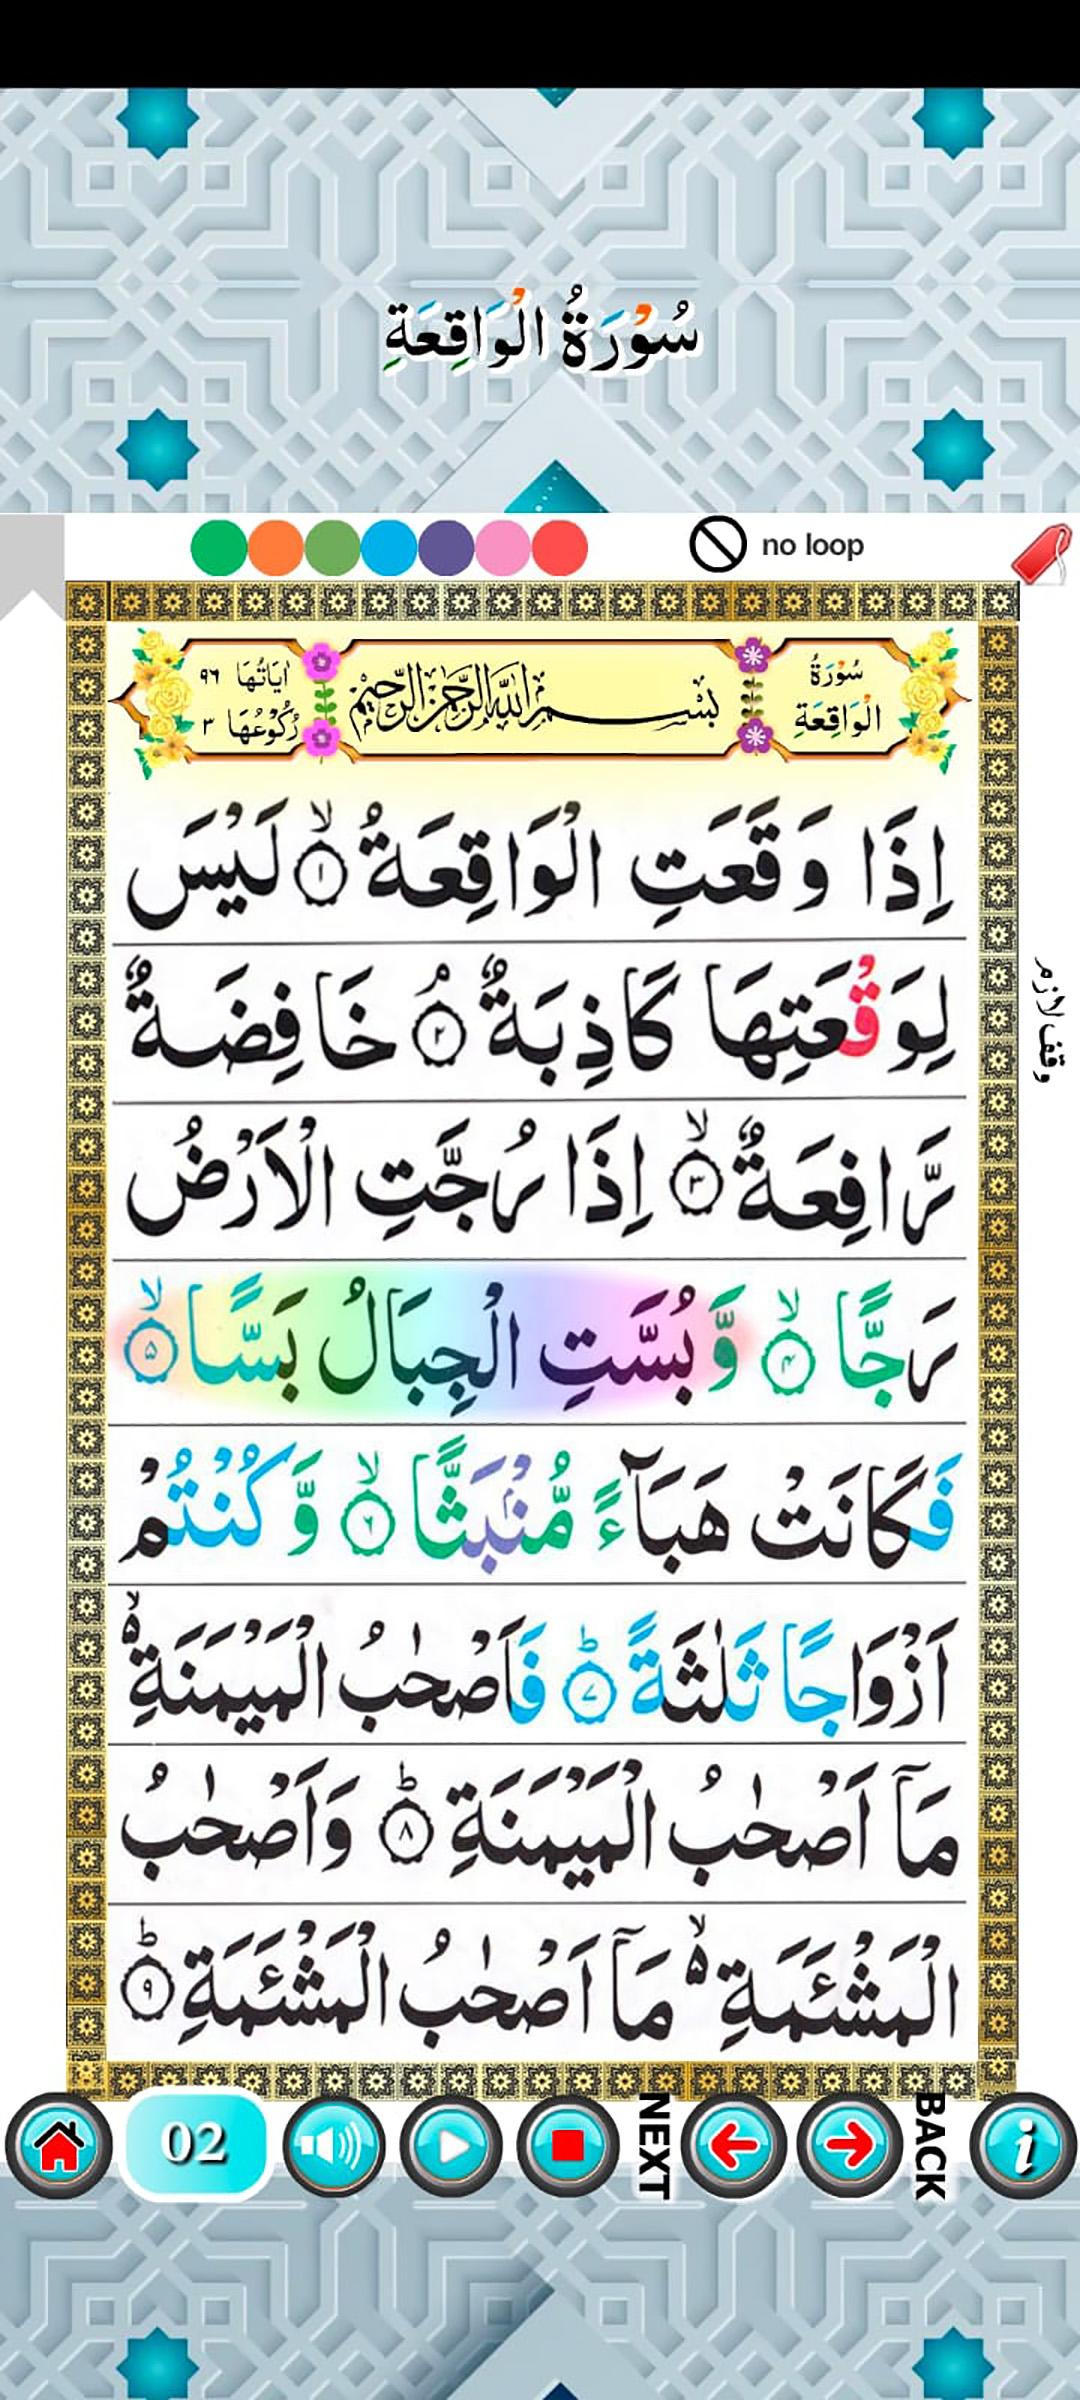 سُوْرَةُ الْوَاقِعَةِ
no loop
سُوْرَةُ الْوَاقِعَةِ
بِسْمِ اللّٰهِ الرَّحْمٰنِ الرَّحِيْمِ
اٰيَاتُهَا ٩٦
رُكُوْعُهَا ٣
اِذَا وَقَعَتِ الْوَاقِعَةُ ۙ۝١ لَيْسَ
لِوَقْعَتِهَا كَاذِبَةٌ ۘ۝٢ خَافِضَةٌ
وقف لازم
رَّافِعَةٌ ۙ۝٣ اِذَا رُجَّتِ الْاَرْضُ
رَجًّا ۙ۝۴ وَّبُسَّتِ الْجِبَالُ بَسًّا ۙ۝۵
فَكَانَتْ هَبَآءً مُّنْۢبَثًّا ۙ۝۶ وَّكُنْتُمْ
اَزْوَاجًا ثَلٰثَةً ؕ۝۷ فَاَصْحٰبُ الْمَيْمَنَةِ ۙ۬
مَاۤ اَصْحٰبُ الْمَيْمَنَةِ ؕ۝٨ وَاَصْحٰبُ
الْمَشْئَمَةِ ۙ۬ مَاۤ اَصْحٰبُ الْمَشْئَمَةِ ؕ۝٩
02
NEXT
BACK
i